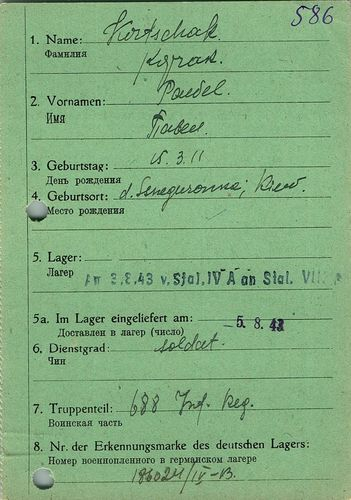 586
1. Name: Kortschak.
Фамилия
2. Vornamen: Pawel.
Имя Павел.
3. Geburtstag: 15.3.11
День рождения
4. Geburtsort: d. , Kiew.
Место рождения
5. Lager:
Лагерь
Am 3.8.43 v. Stal. IV A an Stal. VII
5a. Im Lager eingeliefert am: - 5. 8. 43
Доставлен в лагер (число)
6. Dienstgrad: soldat.
Чин
7. Truppenteil: 688 Inf. Reg.
Воинская часть
8. Nr. der Erkennungsmarke des deutschen Lagers:
Номер военнопленного в германском лагере
/IV-B.